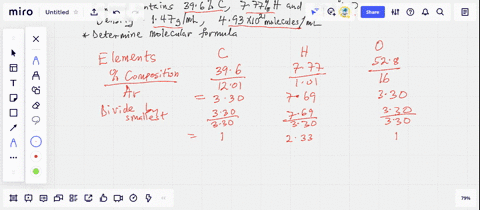 miro Untitled
contains 39.6% C, 7.77% H and
Density 1.47g/mL, 4.93×10²¹ molecules/mL
* Determine molecular formula
Elements C H O
% Composition 39.6 7.77 52.8
Ar 12.01 1.01 16
= 3.30 7.69 3.30
Divide by smallest 3.30 7.69 3.30
3.30 3.30 3.30
= 1 2.33 1
79%